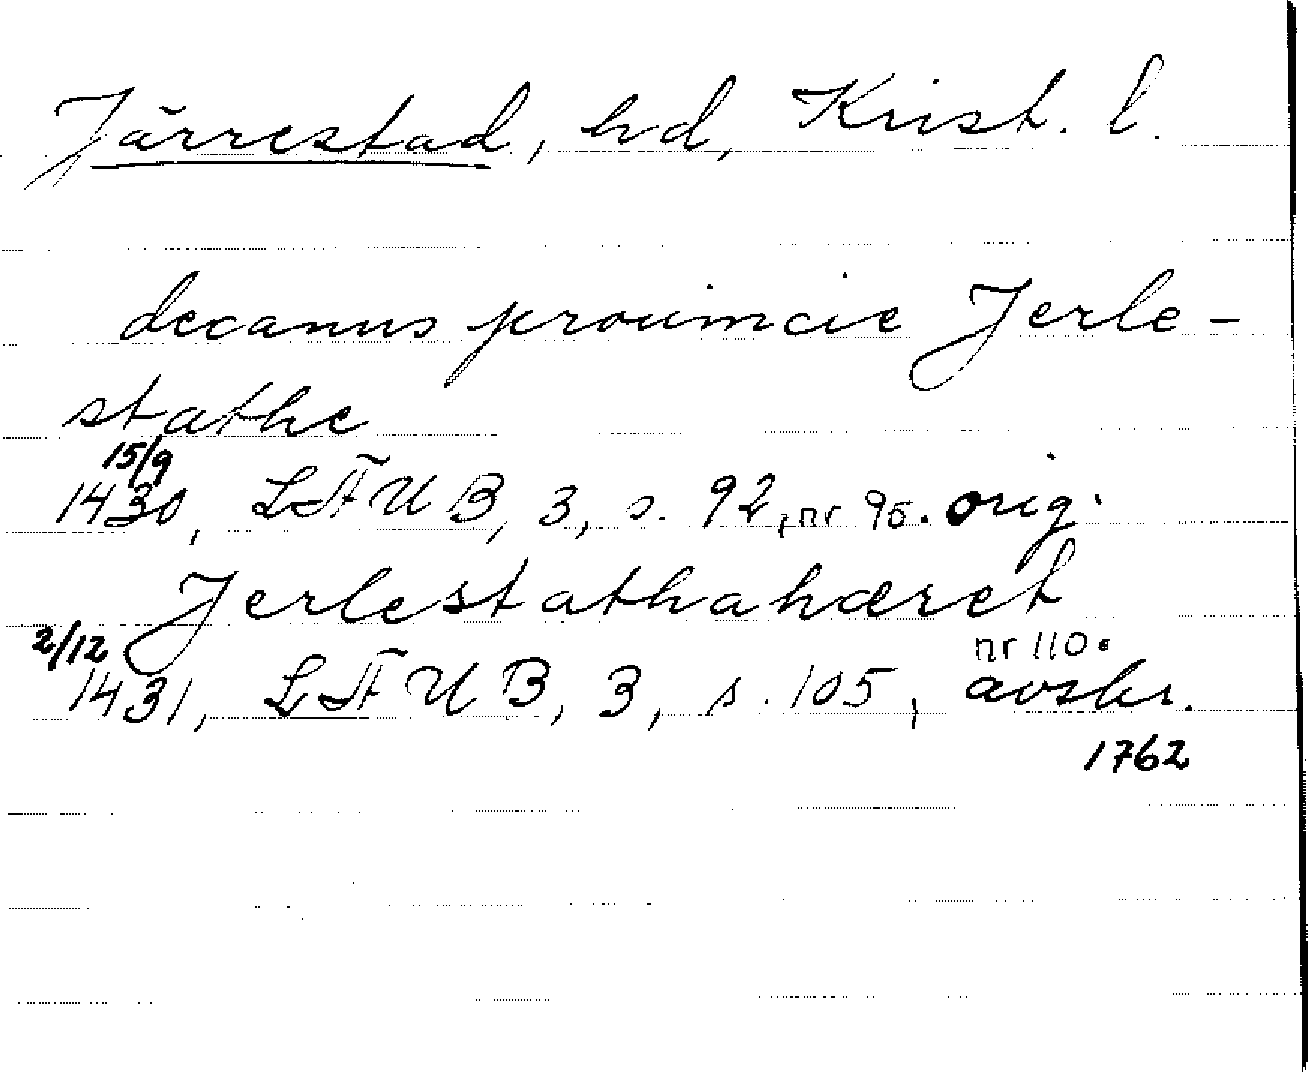 Järrestad, hd, Krist. l.
decanus prouincie Jerle-
stathe
15/9
1430, LÄUB, 3, s. 92, nr 95. orig.
Jerlestathahæret
2/12 nr 110.
1431, LÄUB, 3, s. 105, avskr.
1762